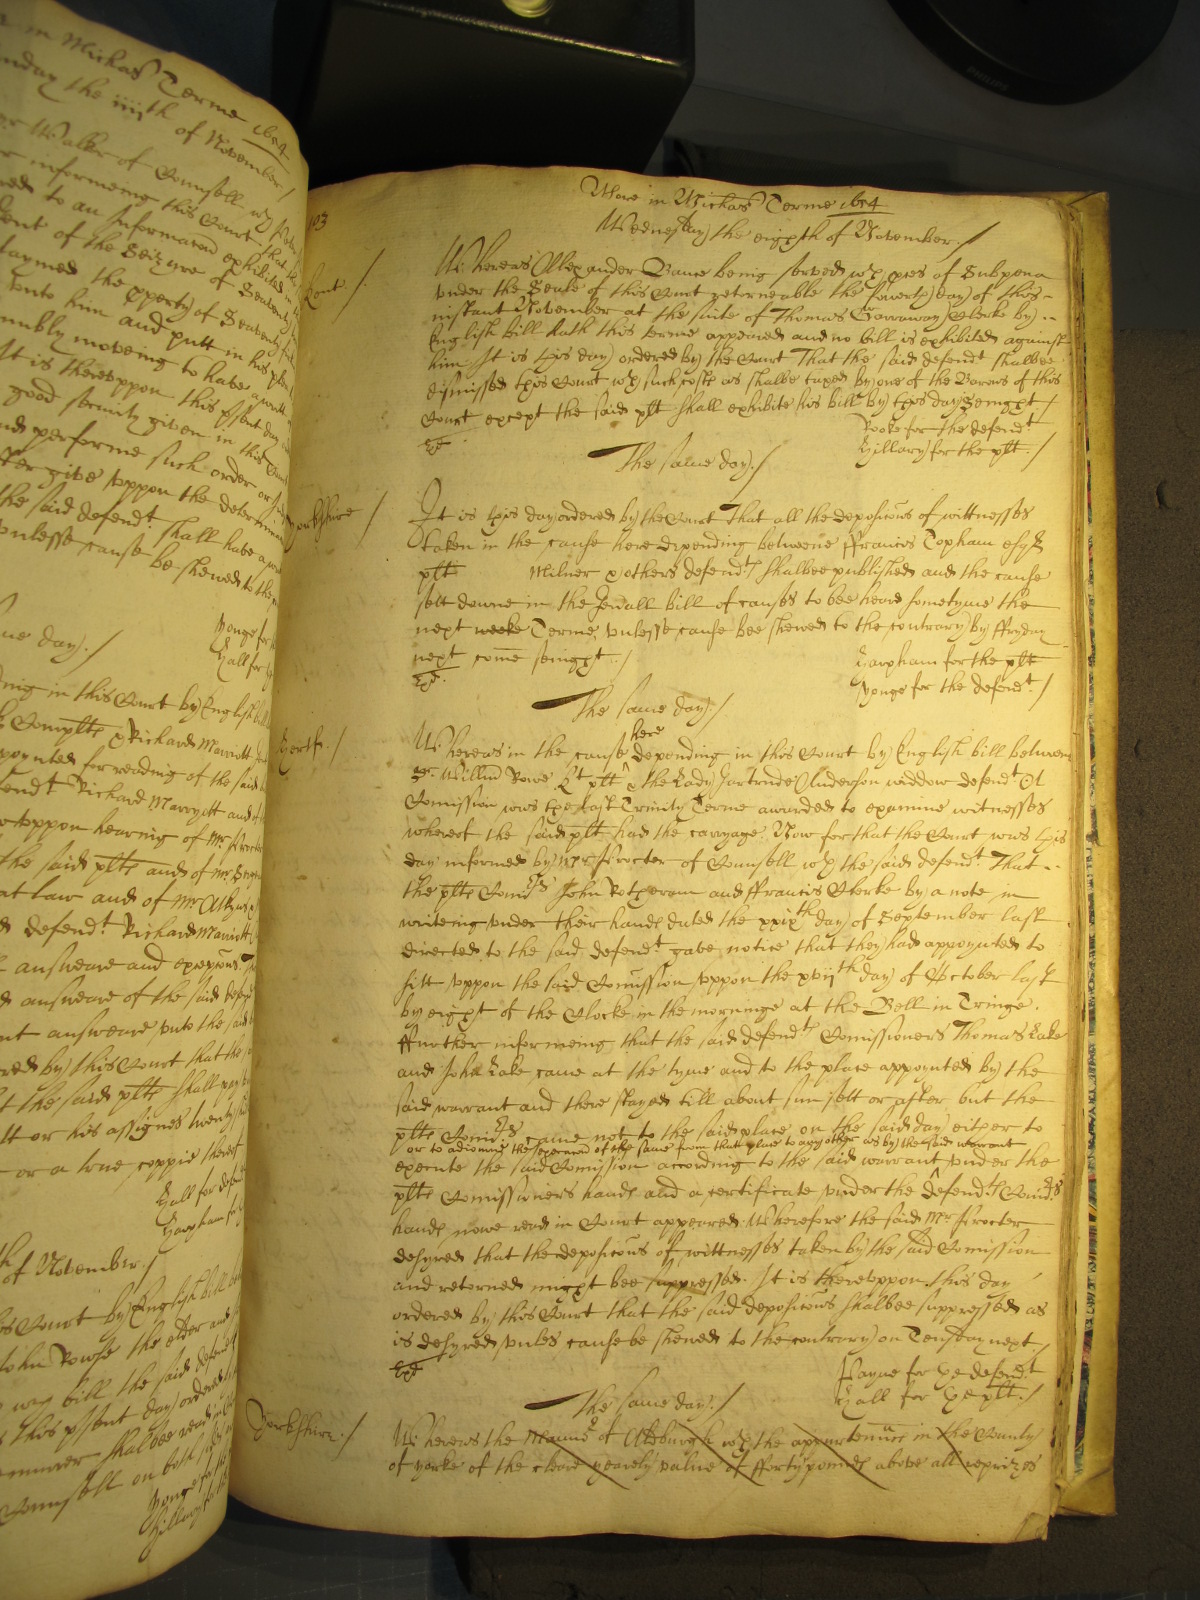 in Michas Terme 1654
the iiijth of November /
Walker of Counsell wth
informeing this Court that
to an Informacon exhibited in
of the Seizure of Seaventy
claymed the pperty of Seaventy
vnto him and putt in his
humbly moveing to have a writt
It is therevppon this psent day
good security given in this Court
and performe such order or
give vppon the
the said defendt. shall have a
vnlesse cause be shewed to the
day. /
Yonge for
Hall for
in this Court by English bill
Complte & Richard Marriott
appoynted for reading of the said
defendt Richard Marryott and
vppon hearing of Mr.
the said plte and of Mr.
at law and of Mr Atkyns
defendt. Richard Marriott
answeare and
answeare of the said
answeare vnto the said
by this Court that the
the said plte shall pay
or his assignes twenty
or a true coppie thereof
Hall for defendt
Harpham for
of November. /
Court by English bill
John Rowse the elder and
bill the said defend
this psent day ordered
shalbee
Counsell on both
Yonge for
Hillary for
103
More in Michas Terme 1654
Wednesday the eighth of November. /
Kent. /
Whereas Alexander Bance being served wth pces of Subpena
vnder the Seale of this Court returneable the fowerth day of this -
instant November at the suite of Thomas Garraway Clerke by ..
English bill hath this terme appeared and no bill is exhibited against
him It is this day ordered by the Court That the said defendt shalbee
dismissed this Court wth such costs as shalbe taxed by one of the Barons of this
Court except the said plt shall exhibite his bill by this day senight /
Rooke for the defendt.
Hillary for the plt. /
The same day. /
Yorkshire /
It is this day ordered by the Court That all the deposicons of wittnesses
taken in the cause here depending betweene ffrancis Topham esqr
plt Milner & others defendts shalbee published and the cause
sett downe in the genall bill of causes to bee heard sometyme the
next weeke Terme, vnlesse cause bee shewed to the contrary by ffryday
next come senight. /
Harpham for the plt
Yonge for the defendt. /
The same day. /
Hertf. /
here
Whereas in the cause depending in this Court by English bill betweene
Sr. Willm Rowe Kt plt & the Lady Jartrude Anderson widdow defendt. A
Comission was the last Trinity Terme awarded to examine witnesses
whereof the said plt had the carryage. Now for that the Court was this
day informed by Mr. Procter of Counsell wth the said defendt. That -
the plts Comrs John Rotheram and ffrancis Clerke by a note in
writeing vnder their hands dated the xxixth day of September last
directed to the said defendt gave notice that they had appoynted to
sitt vppon the said Comission vppon the xvijth day of October last
by eight of the Clocke in the morninge at the Bell in Tringe.
ffurther informeing that the said defendts Comissioners Thomas Lake
and John Lake came at the tyme and to the place appoynted by the
said warrant and there stayed till about sun sett or after but the
plts Comrs came not to the said place on the said day either to
or to adiourne the execucon of the same from that place to any other as by the said warrant
execute the said Comission according to the said warrant vnder the
plts Comissioners hands and a certificate vnder the defendts Comrs
hands nowe read in Court appeared. Wherefore the said Mr Procter
desyred that the deposicons of wittnesses taken by the said Comission
and returned might bee suppressed. It is therevppon this day
ordered by this Court that the said deposicons shalbee suppressed as
is desyred vnles cause be shewed to the contrary on Tensday next /
Payne for the defendt.
Hall for the plt. /
The same day. /
Yorkshire. /
Whereas the Mannor of Aldburgh wth the appurtenncs in the County
of yorke of the cleare yearely value of fforty pounds above all reprizes